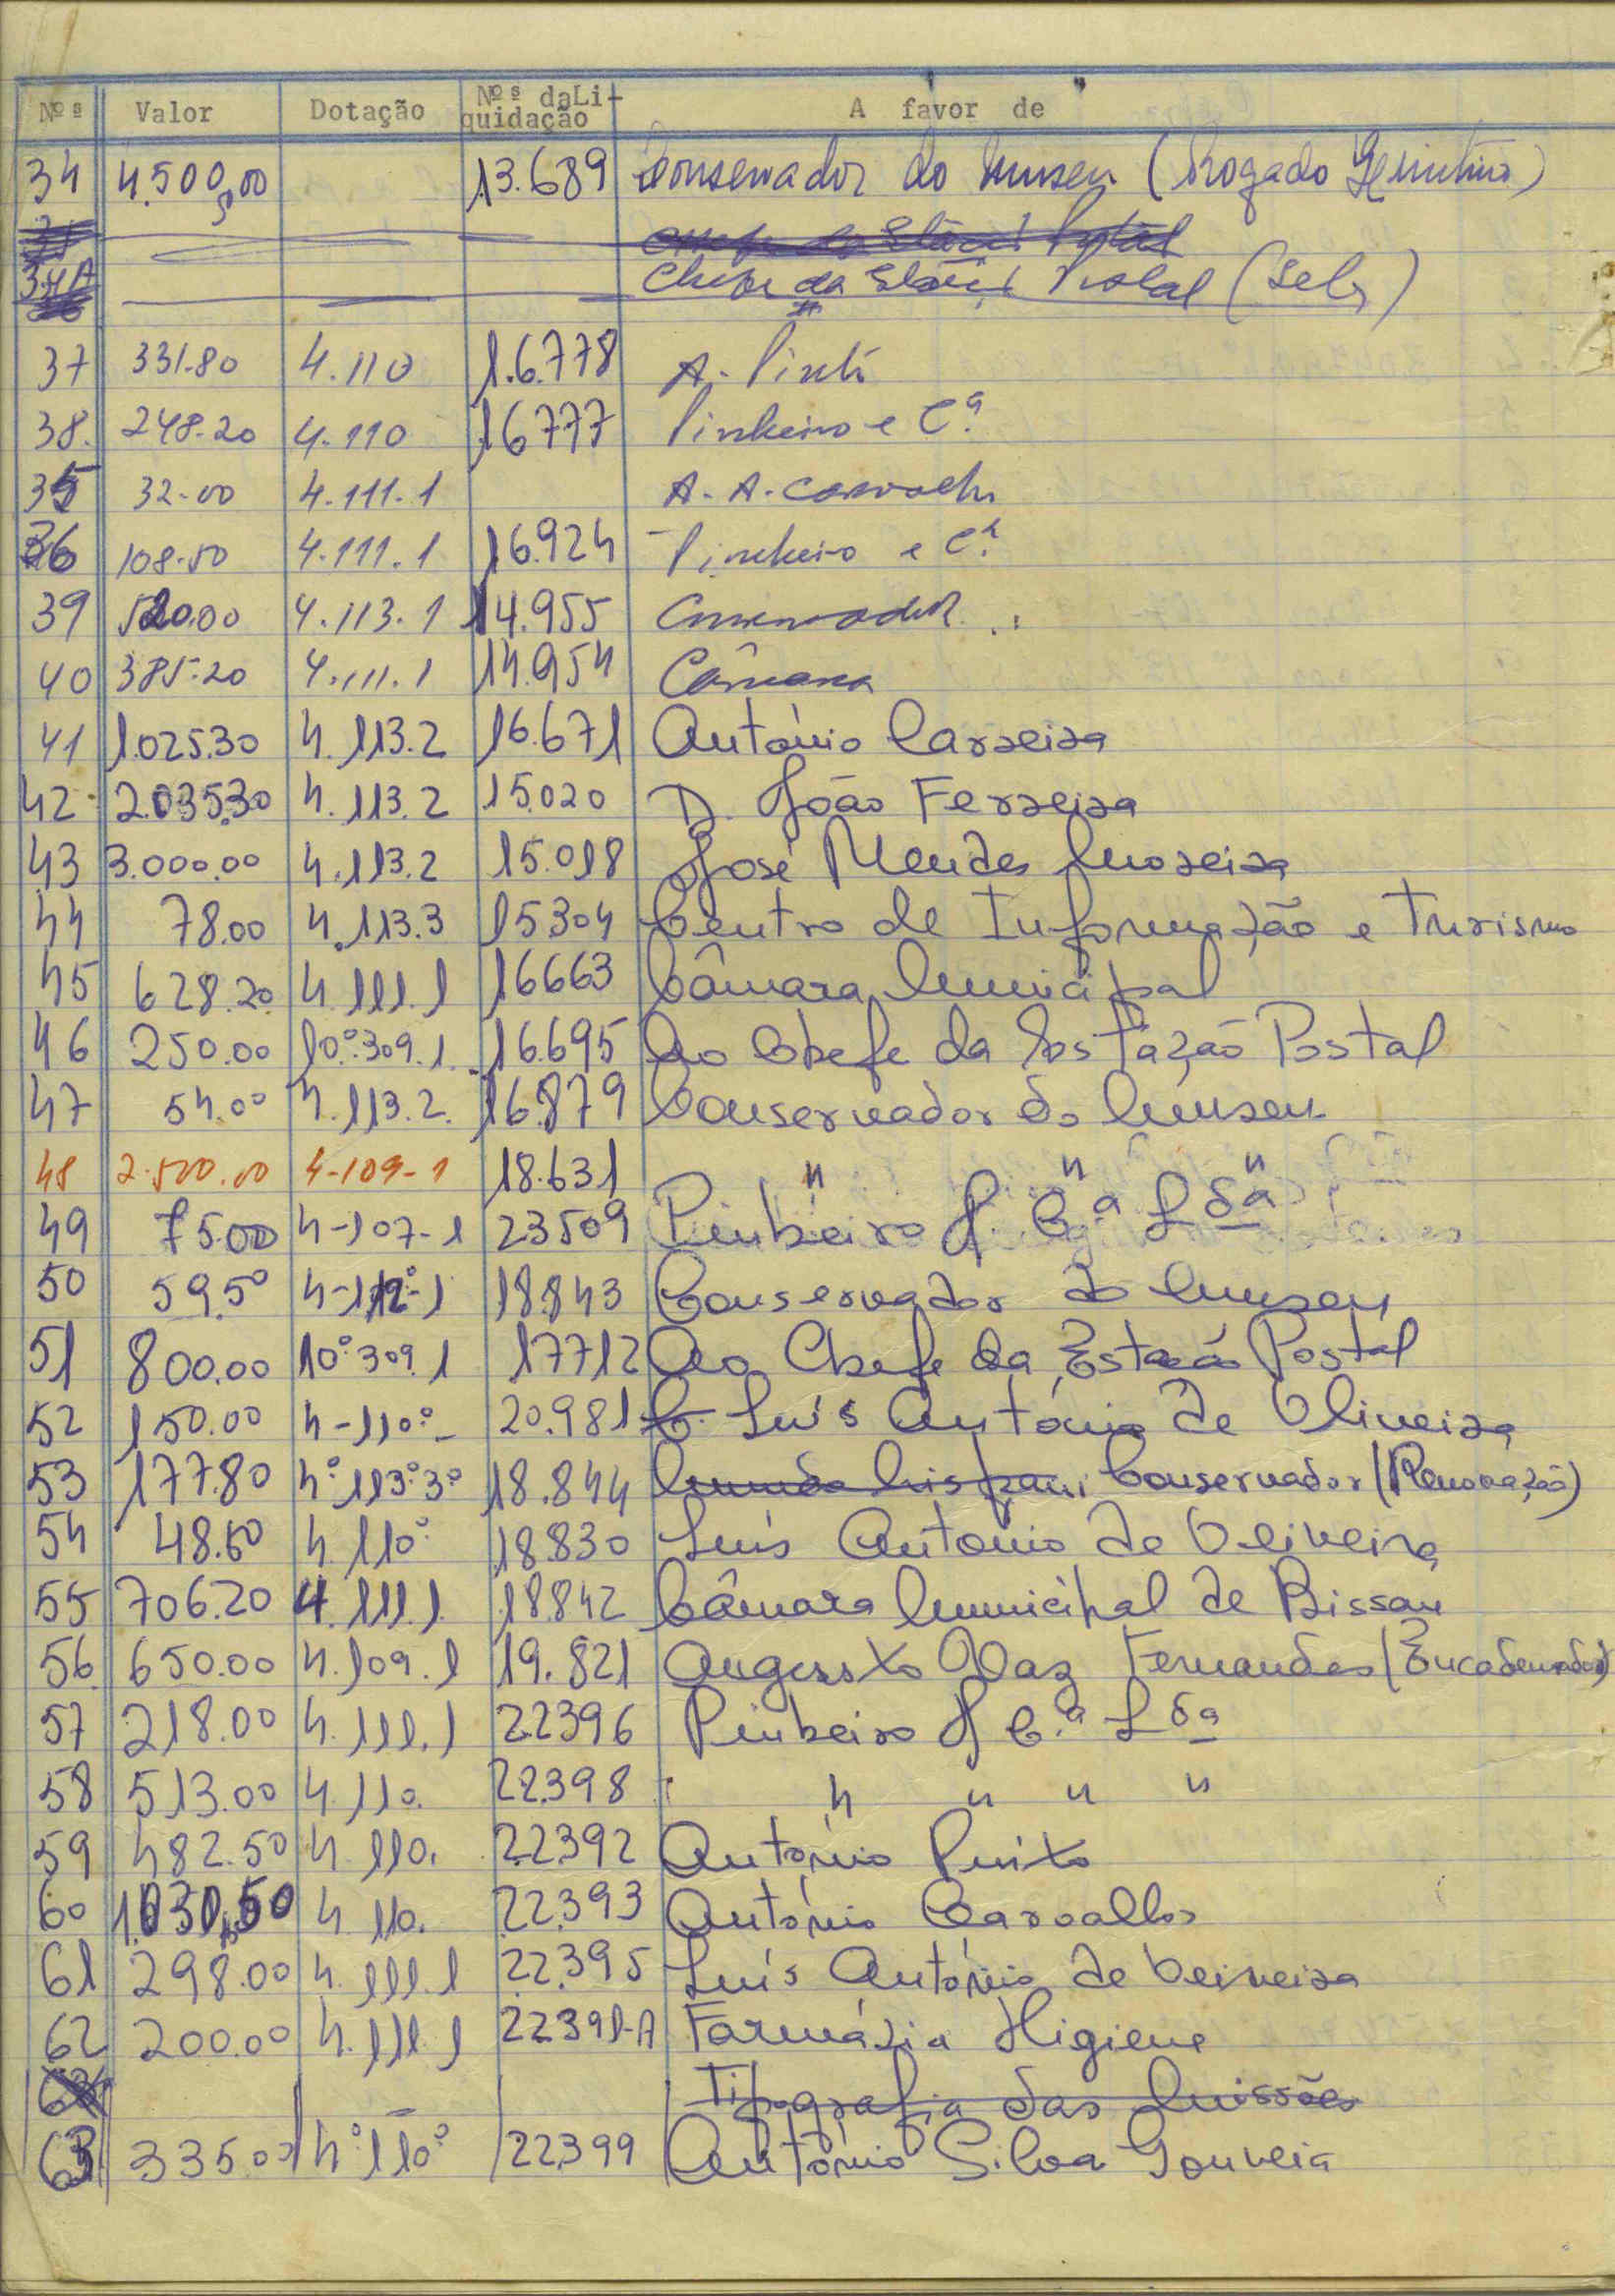 Nºs Valor Dotação Nºs da Liquidação A favor de
34 4.500,00 13.689 Conservador do Museu (Rogado
34A Chefe da Estação Postal (Selos)
37 331.80 4.110 16.778 A. Pinto
38. 248.20 4.110 16777 Pinheiro e Cª
35 32.00 4.111.1 A. A. Carvalho
36 108.50 4.111.1 16.924 Pinheiro e Cª
39 520.00 4.113.1 14.955 Conservador
40 385.20 4.111.1 14.954 Câmara
41 1.025.30 4.113.2 16.671 António Carreira
42 2.035.30 4.113.2 15.020 D. João Ferreira
43 3.000.00 4.113.2 15.018 José Mendes Moreira
44 78.00 4.113.3 15.304 Centro de Informação e Turismo
45 628.20 4.111.1 16663 Câmara Municipal
46 250.00 10.º309.1 16.695 Ao Chefe da Estação Postal
47 54.00 4.113.2. 16.879 Conservador do Museu
48 2.500.00 4-109-1 18.631 " " "
49 75.00 4-107-1 23509 Pinheiro & C.ª Ldª
50 59.50 4-112º-1 18.843 Conservador do Museu
51 800.00 10º309.1 17712 Ao Chefe da Estação Postal
52 150.00 4-110º- 20.981 Luís António de Oliveira
53 177.80 4º113º3º 18.844 Conservador (Renovação)
54 48.60 4.110º 18.830 Luís António de Oliveira
55 706.20 4.111.1. 18.842 Câmara Municipal de Bissau
56. 650.00 4.109.1 19.821 Augusto Vaz Fernandes (Encadernador)
57 218.00 4.111.1 22396 Pinheiro & C.ª Ldª
58 513.00 4.110. 22.398 " " " "
59 482.50 4.110. 22.392 António Pinto
60 1.030,50 4.110. 22.393 António Carvalho
61 298.00 4.111.1 22.395 Luís António de Oliveira
62 200.00 4.111.1 22.391-A Farmácia Higiene
Tipografia das Missões
63 335.00 4º110º 22.399 António Silva Gouveia